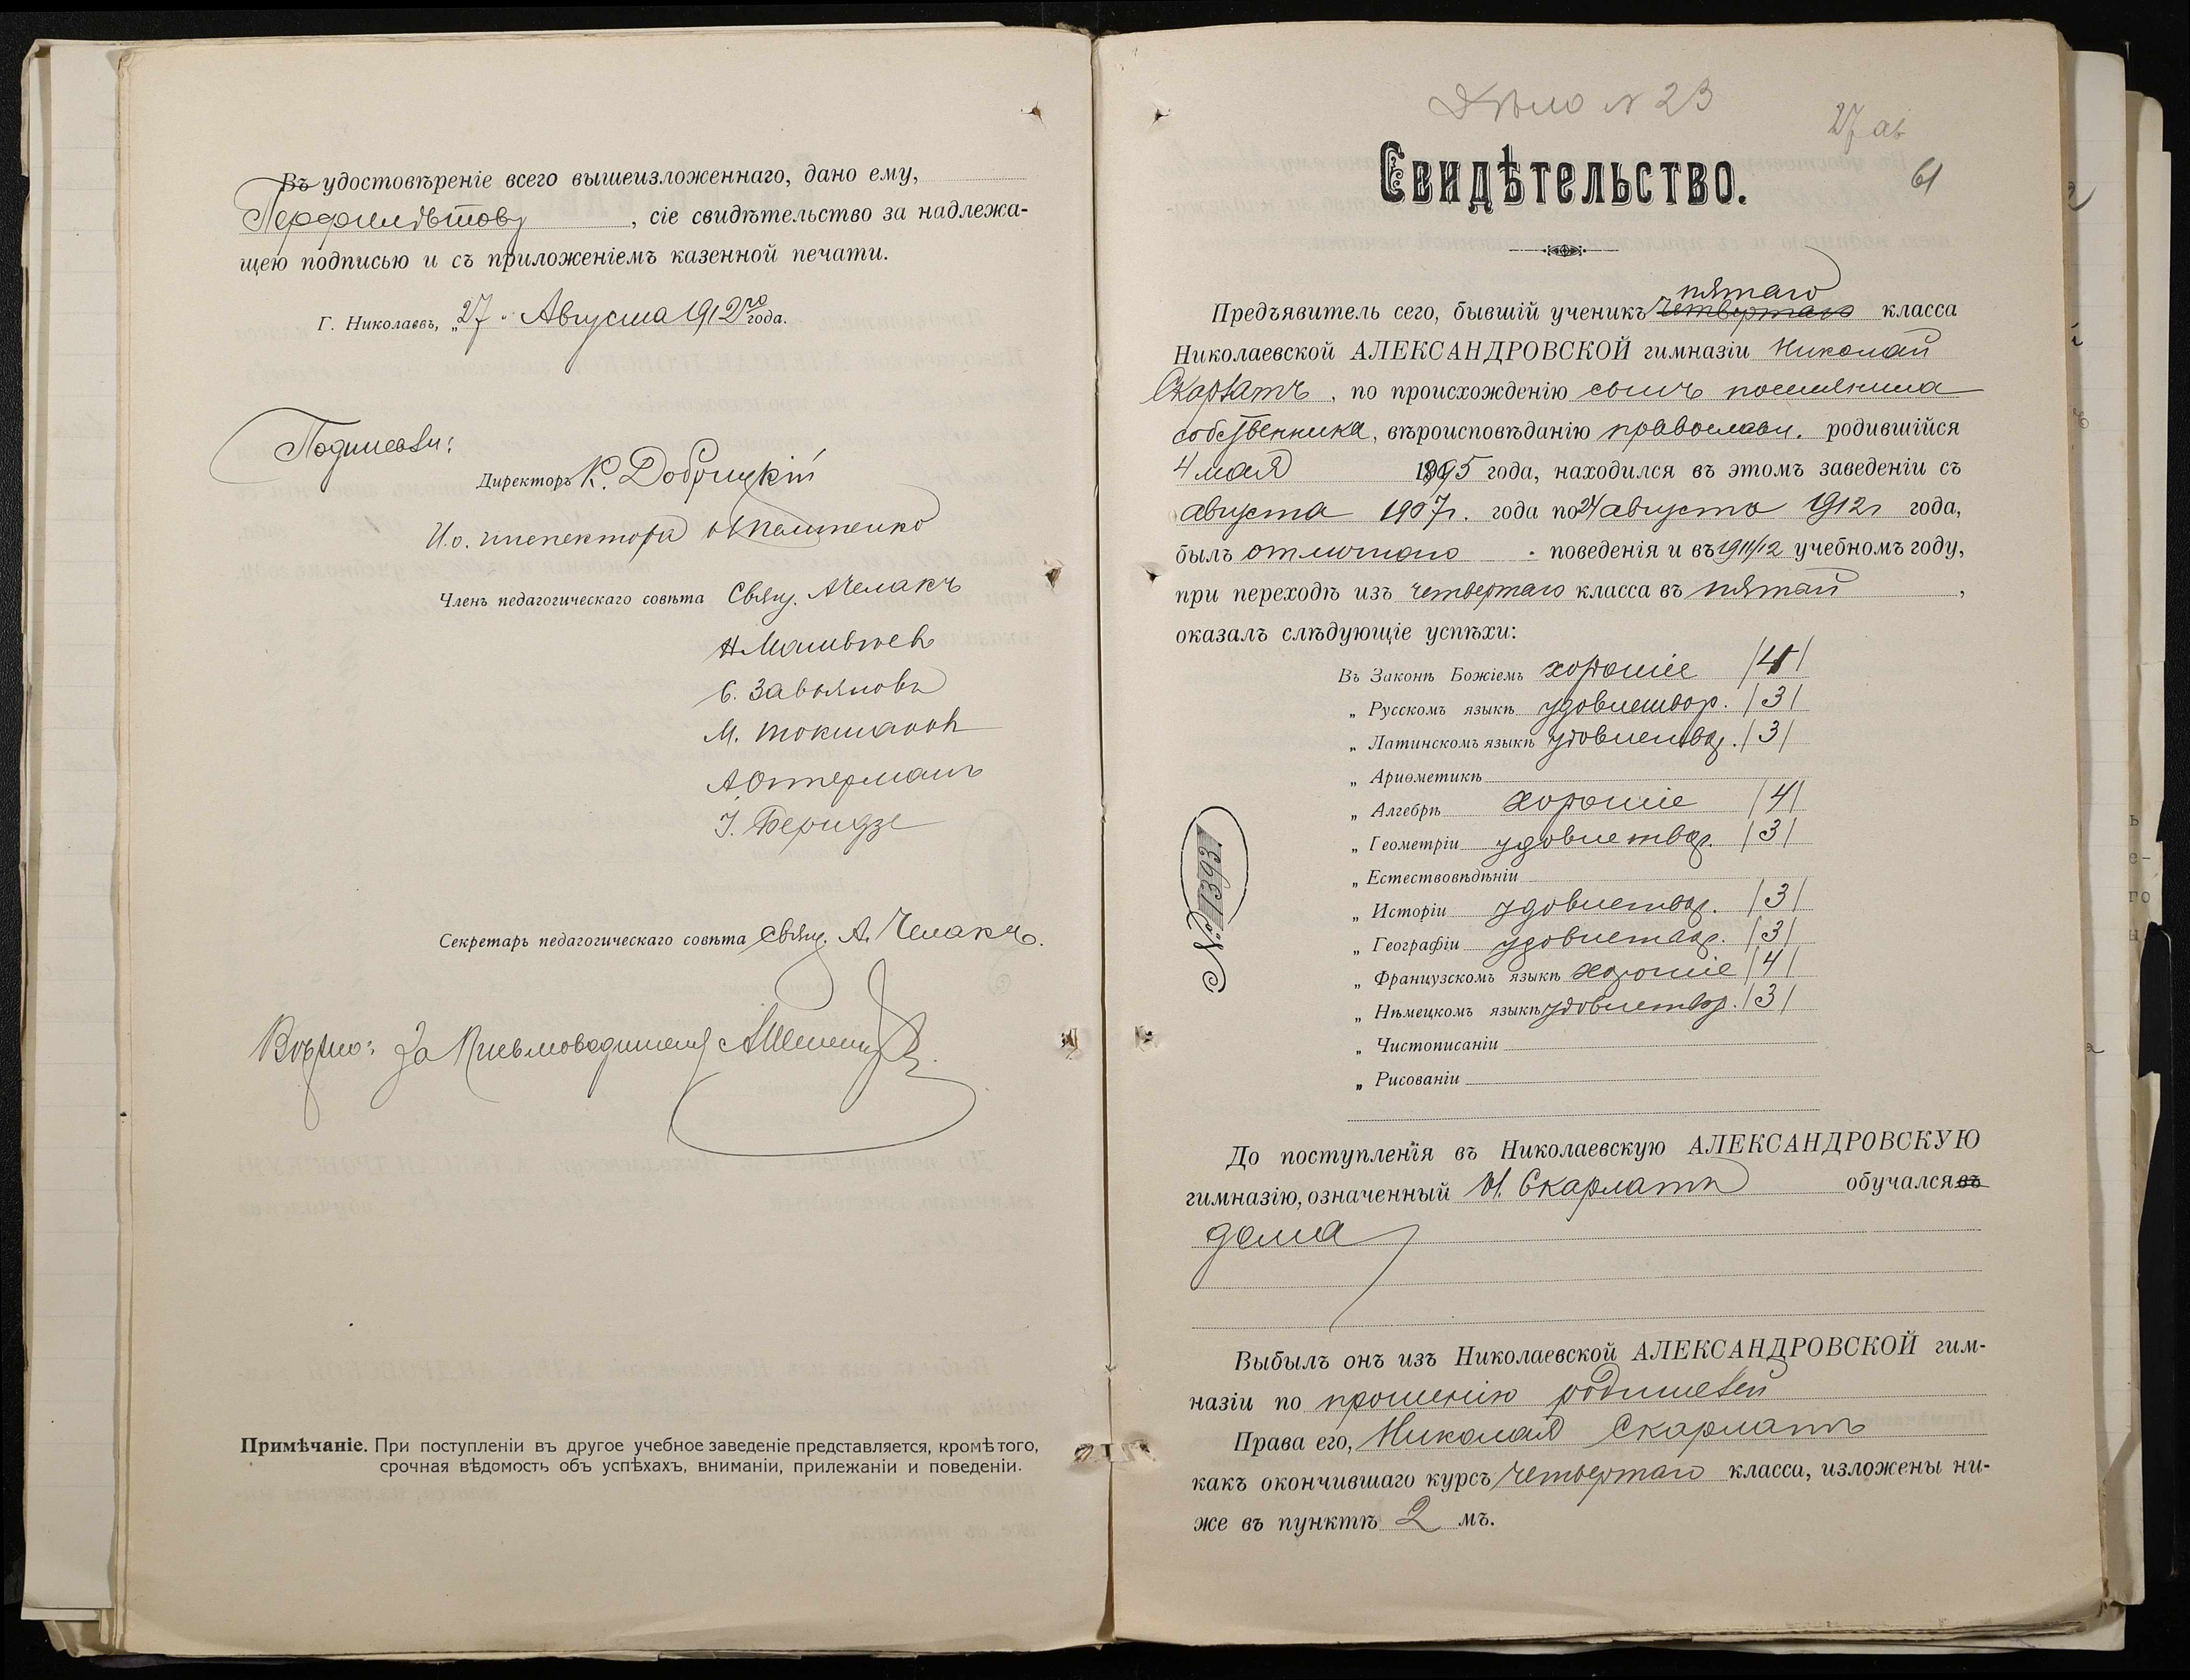 Въ удостовѣреніе всего вышеизложеннаго, дано ему,
Перфильѣтову, сіе свидѣтельство за надлежа-
щею подписью и съ приложеніемъ казенной печати.
Г. Николаевъ, „27“ Августа 1912го года.
Подписали:
Директоръ К. Добрицкій
И.о. инспектора
Членъ педагогическаго совѣта Свящ. А Челакъ
Н Матвѣевъ
С. Завьяловъ
М. Токмаковъ
А Оттерманъ
І. Беридзе
Секретарь педагогическаго совѣта Свящ. А. Челакъ.
Вѣрно: За Письмоводителя
Примѣчаніе. При поступленіи въ другое учебное заведеніе представляется, кромѣ того,
срочная вѣдомость объ успѣхахъ, вниманіи, прилежаніи и поведеніи.
Дѣло N 23
27 ав
61
Свидѣтельство.
пятаго
Предъявитель сего, бывшій ученикъ четвертаго класса
Николаевской АЛЕКСАНДРОВСКОЙ гимназіи Николай
Скарлатъ, по происхожденію сынъ поселянина
собственника, вѣроисповѣданію православн. родившійся
4 мая 1895 года, находился въ этомъ заведеніи съ
августа 1907г. года по 24 августа 1912г года,
былъ отличнаго поведенія и въ 1911/12 учебномъ году,
при переходѣ изъ четвертаго класса въ пятый,
оказалъ слѣдующіе успѣхи:
Въ Законѣ Божіемъ хорошіе /4/
„ Русскомъ языкѣ удовлетвор. /3/
„ Латинскомъ языкѣ удовлетвор. /3/
„ Ариѳметикѣ
„ Алгебрѣ хорошіе /4/
„ Геометріи удовлетвор. /3/
„ Естествовѣдѣніи
„ Исторіи удовлетвор. /3/
„ Географіи удовлетвор. /3/
„ Французскомъ языкѣ хорошіе /4/
„ Нѣмецкомъ языкѣ удовлетвор. /3/
„ Чистописаніи
„ Рисованіи
№ 1393.
До поступленія въ Николаевскую АЛЕКСАНДРОВСКУЮ
гимназію, означенный Н. Скарлатъ обучался въ
дома
Выбылъ онъ изъ Николаевской АЛЕКСАНДРОВСКОЙ гим-
назіи по прошенію родителей
Права его, Николая Скарлатъ
какъ окончившаго курсъ четвертаго класса, изложены ни-
же въ пунктѣ 2 мъ.